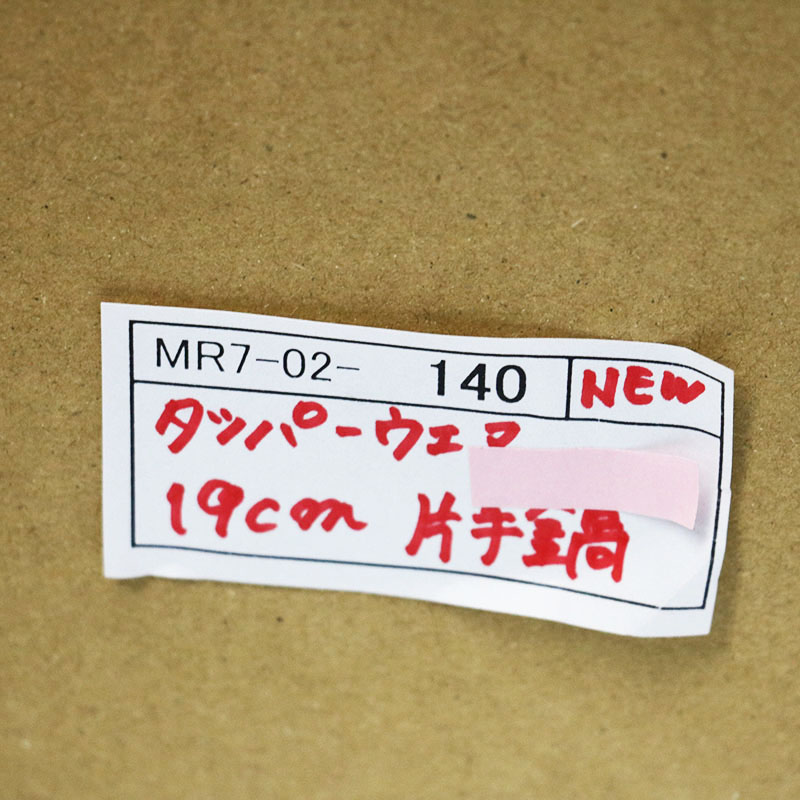 MR7-02- 140 NEW
タッパーウェ
19cm 片手鍋